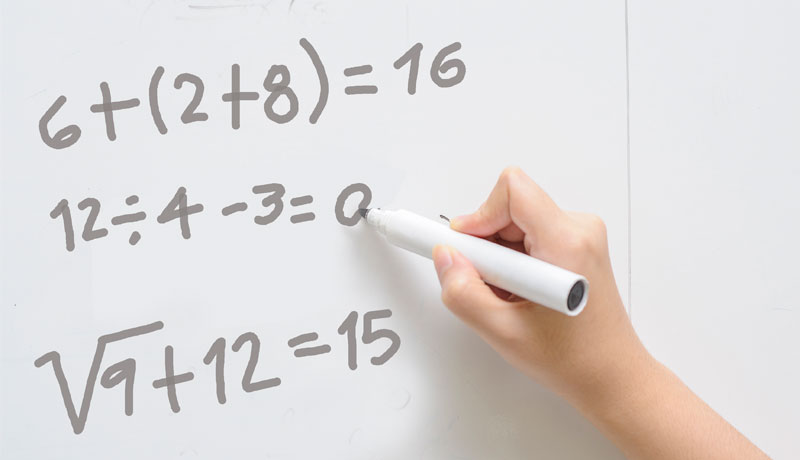 6+(2+8)=16
12÷4-3=0
√9+12=15